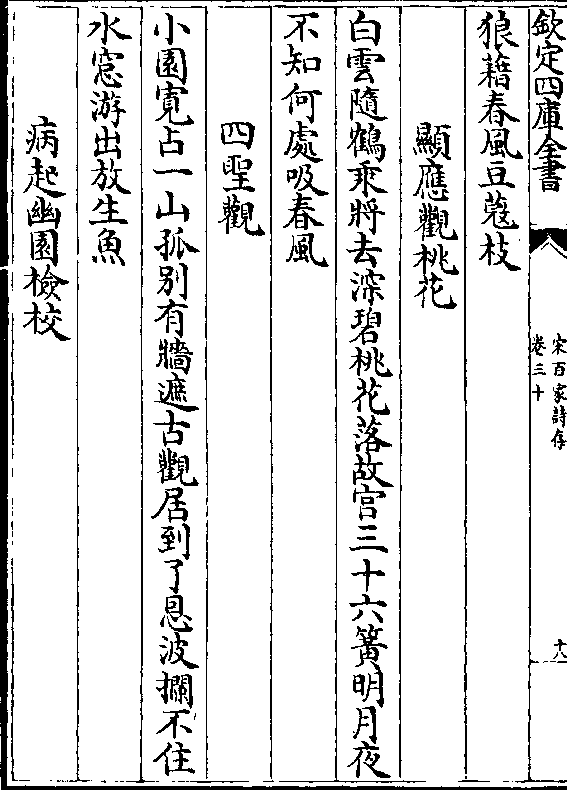 欽定四庫全書
宋百家詩存
卷三十
十八
狼藉春風豆蔻枝
顯應觀桃花
白雲隨鶴乗將去深碧桃花落故宫三十六簧明月夜
不知何處吸春風
四聖觀
小園寛占一山孤别有牆遮古觀居到了恩波攔不住
水窓游出放生魚
病起幽園檢校